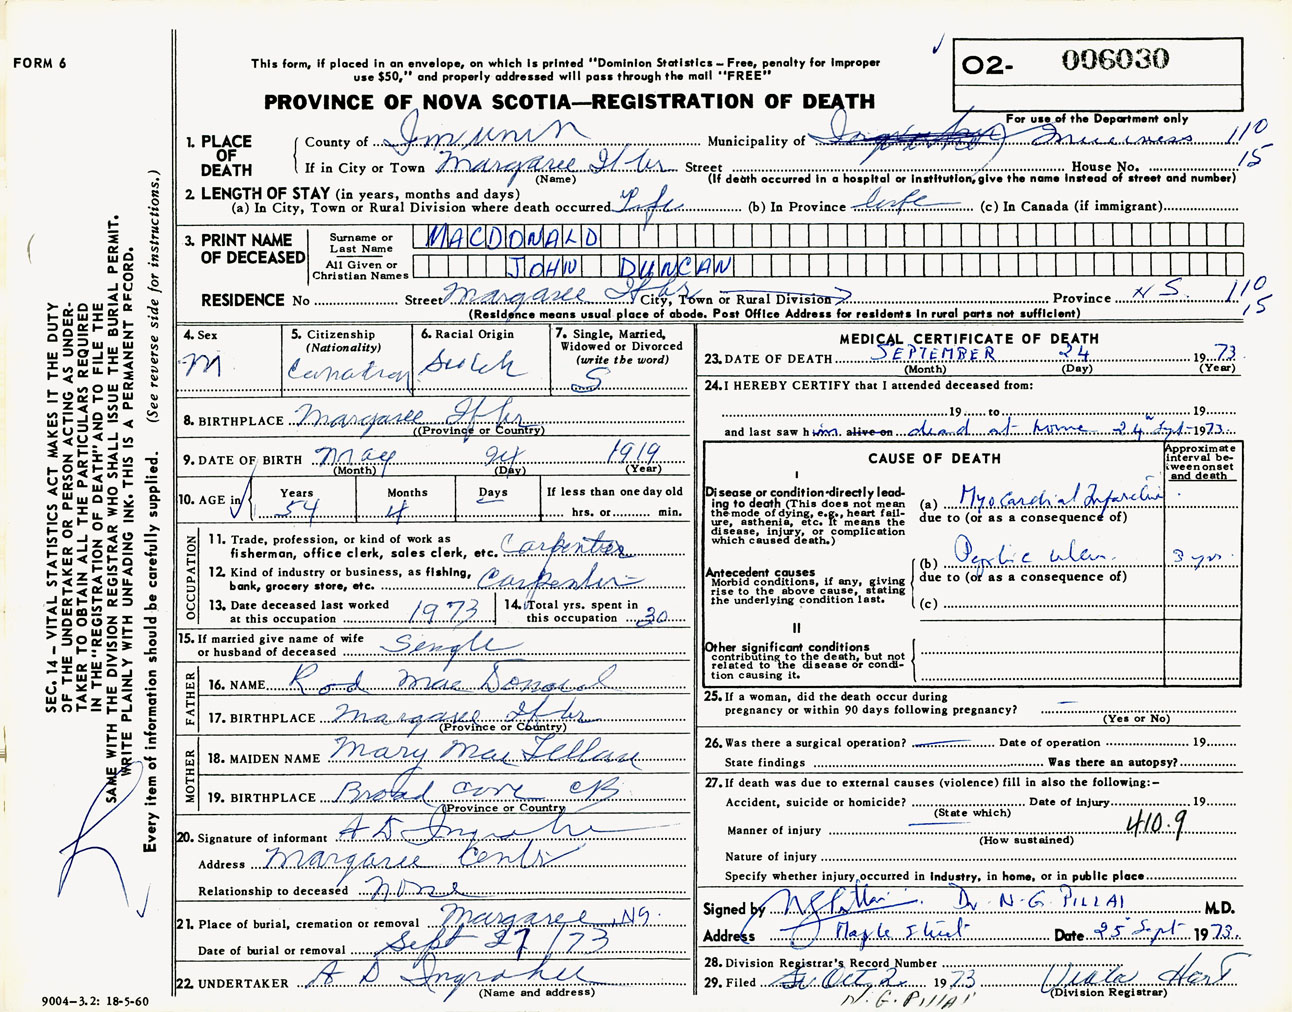 FORM 6
This form, if placed in an envelope, on which is printed "Dominion Statistics – Free, penalty for improper
use $50," and properly addressed will pass through the mail "FREE"
O2- 006030
For use of the Department only
PROVINCE OF NOVA SCOTIA—REGISTRATION OF DEATH
1. PLACE OF DEATH
County of
Municipality of Inverness 110
If in City or Town Margaree Hbr Street House No. 15
(Name) (If death occurred in a hospital or institution, give the name instead of street and number)
2. LENGTH OF STAY (in years, months and days)
(a) In City, Town or Rural Division where death occurred Life (b) In Province Life (c) In Canada (if immigrant)
3. PRINT NAME OF DECEASED
Surname or Last Name MACDONALD
All Given or Christian Names JOHN DUNCAN
RESIDENCE No Street Margaree Hbr City, Town or Rural Division Province N S. 110
(Residence means usual place of abode. Post Office Address for residents in rural parts not sufficient) 15
4. Sex
M
5. Citizenship
(Nationality)
Canadian
6. Racial Origin
Scotch
7. Single, Married,
Widowed or Divorced
(write the word)
S
8. BIRTHPLACE Margaree Hbr
((Province or Country)
9. DATE OF BIRTH May 9th 1919
(Month) (Day) (Year)
10. AGE in
Years Months Days If less than one day old
54 4 hrs. or min.
OCCUPATION
11. Trade, profession, or kind of work as
fisherman, office clerk, sales clerk, etc. Carpenter
12. Kind of industry or business, as fishing,
bank, grocery store, etc. Carpenter
13. Date deceased last worked
at this occupation 1973
14. Total yrs. spent in
this occupation 30
15. If married give name of wife
or husband of deceased Single
FATHER
16. NAME Rod MacDonald
17. BIRTHPLACE Margaree Hbr
(Province or Country)
MOTHER
18. MAIDEN NAME Mary MacLellan
19. BIRTHPLACE Broad Cove CB
(Province or Country
20. Signature of informant A D Ingraham
Address Margaree Centre
Relationship to deceased none
21. Place of burial, cremation or removal Margaree, NS.
Date of burial or removal Sept 27/73
22. UNDERTAKER A D Ingraham
(Name and address)
MEDICAL CERTIFICATE OF DEATH
23. DATE OF DEATH SEPTEMBER 24 1973
(Month) (Day) (Year)
24. I HEREBY CERTIFY that I attended deceased from:
19 to 19
and last saw him alive on dead at home 24th Sept 1973
CAUSE OF DEATH
Approximate
interval be-
tween onset
and death
I
Disease or condition directly lead-
ing to death (This does not
mean the mode of dying, e.g., heart fail-
ure, asthenia, etc. It means the
disease, injury, or complication
which caused death.)
(a) Myocardial Infarction
due to (or as a consequence of)
Antecedent causes
Morbid conditions, if any, giving
rise to the above cause, stating
the underlying condition last.
(b) Peptic ulcer. 3 yrs.
due to (or as a consequence of)
(c)
II
Other significant conditions
contributing to the death, but not
related to the disease or condi-
tion causing it.
25. If a woman, did the death occur during
pregnancy or within 90 days following pregnancy? –
(Yes or No)
26. Was there a surgical operation? — Date of operation 19
State findings Was there an autopsy?
27. If death was due to external causes (violence) fill in also the following:–
Accident, suicide or homicide? Date of injury 19
(State which)
Manner of injury 410.9
(How sustained)
Nature of injury
Specify whether injury occurred in industry, in home, or in public place
Signed by Dr. N. G. PILLAI M.D.
Address Maple Street Date 25 Sept 1973.
28. Division Registrar's Record Number
29. Filed Oct 2 1973 Hart
(Division Registrar)
N. G. Pillai
SEC. 14 – VITAL STATISTICS ACT MAKES IT THE DUTY
OF THE UNDERTAKER OR PERSON ACTING AS UNDER-
TAKER TO OBTAIN ALL THE PARTICULARS REQUIRED
IN THE "REGISTRATION OF DEATH" AND TO FILE THE
SAME WITH THE DIVISION REGISTRAR WHO SHALL ISSUE THE BURIAL PERMIT.
WRITE PLAINLY WITH UNFADING INK. THIS IS A PERMANENT RECORD.
Every item of information should be carefully supplied. (See reverse side for instructions.)
9004–3.2: 18-5-60